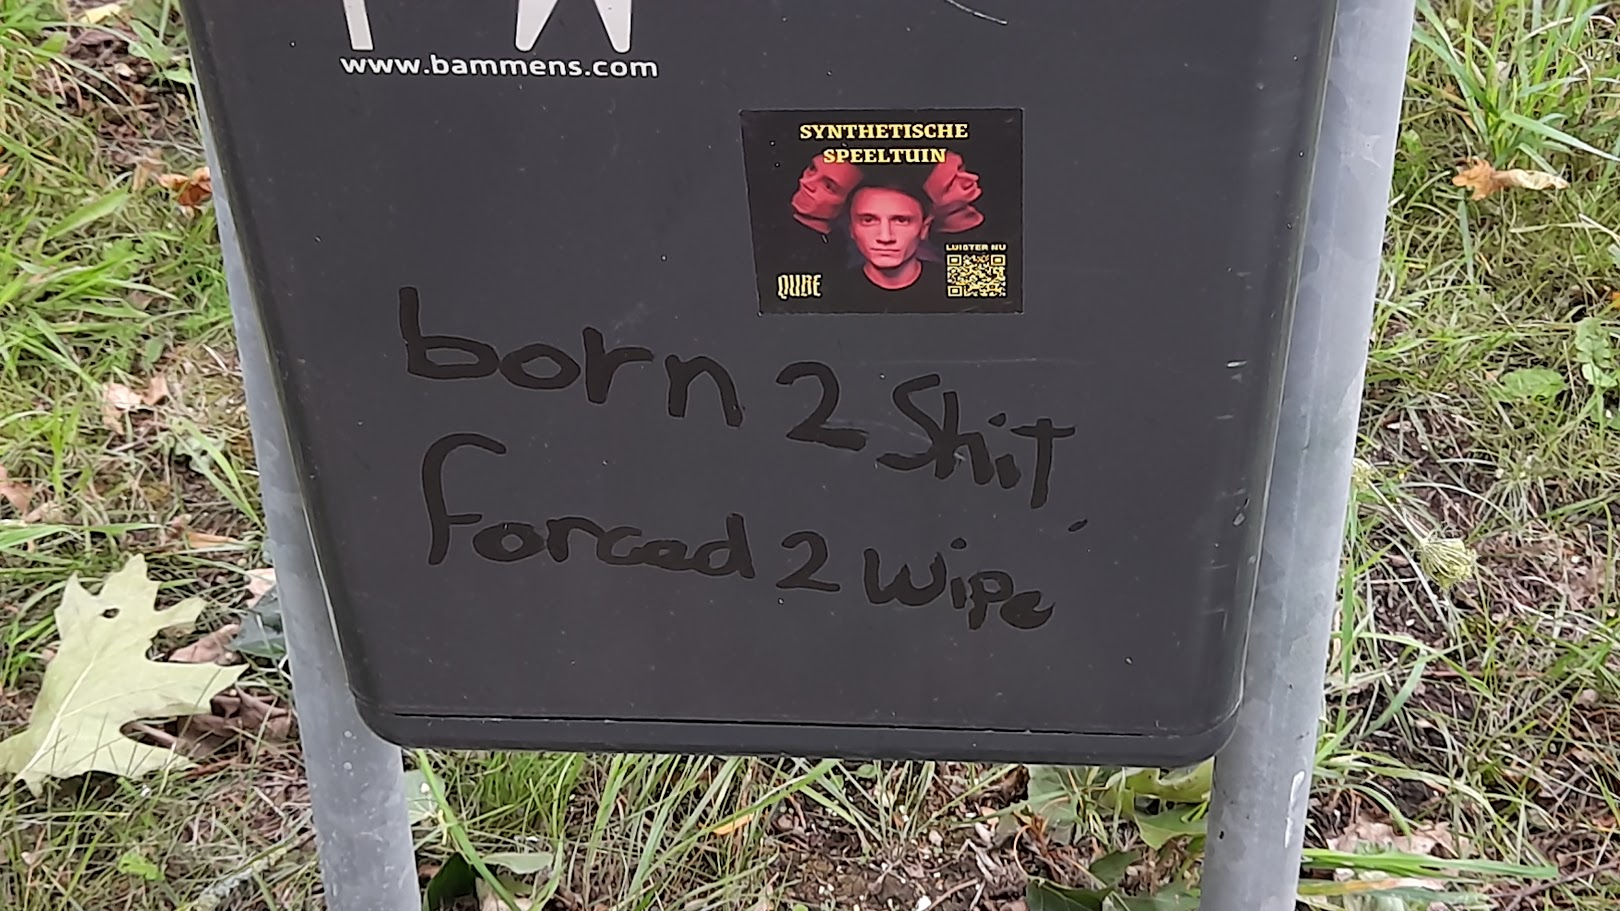 www.bammens.com
SYNTHETISCHE
SPEELTUIN
LUISTER NU
QUBE
born 2 Shit
forced 2 wipe